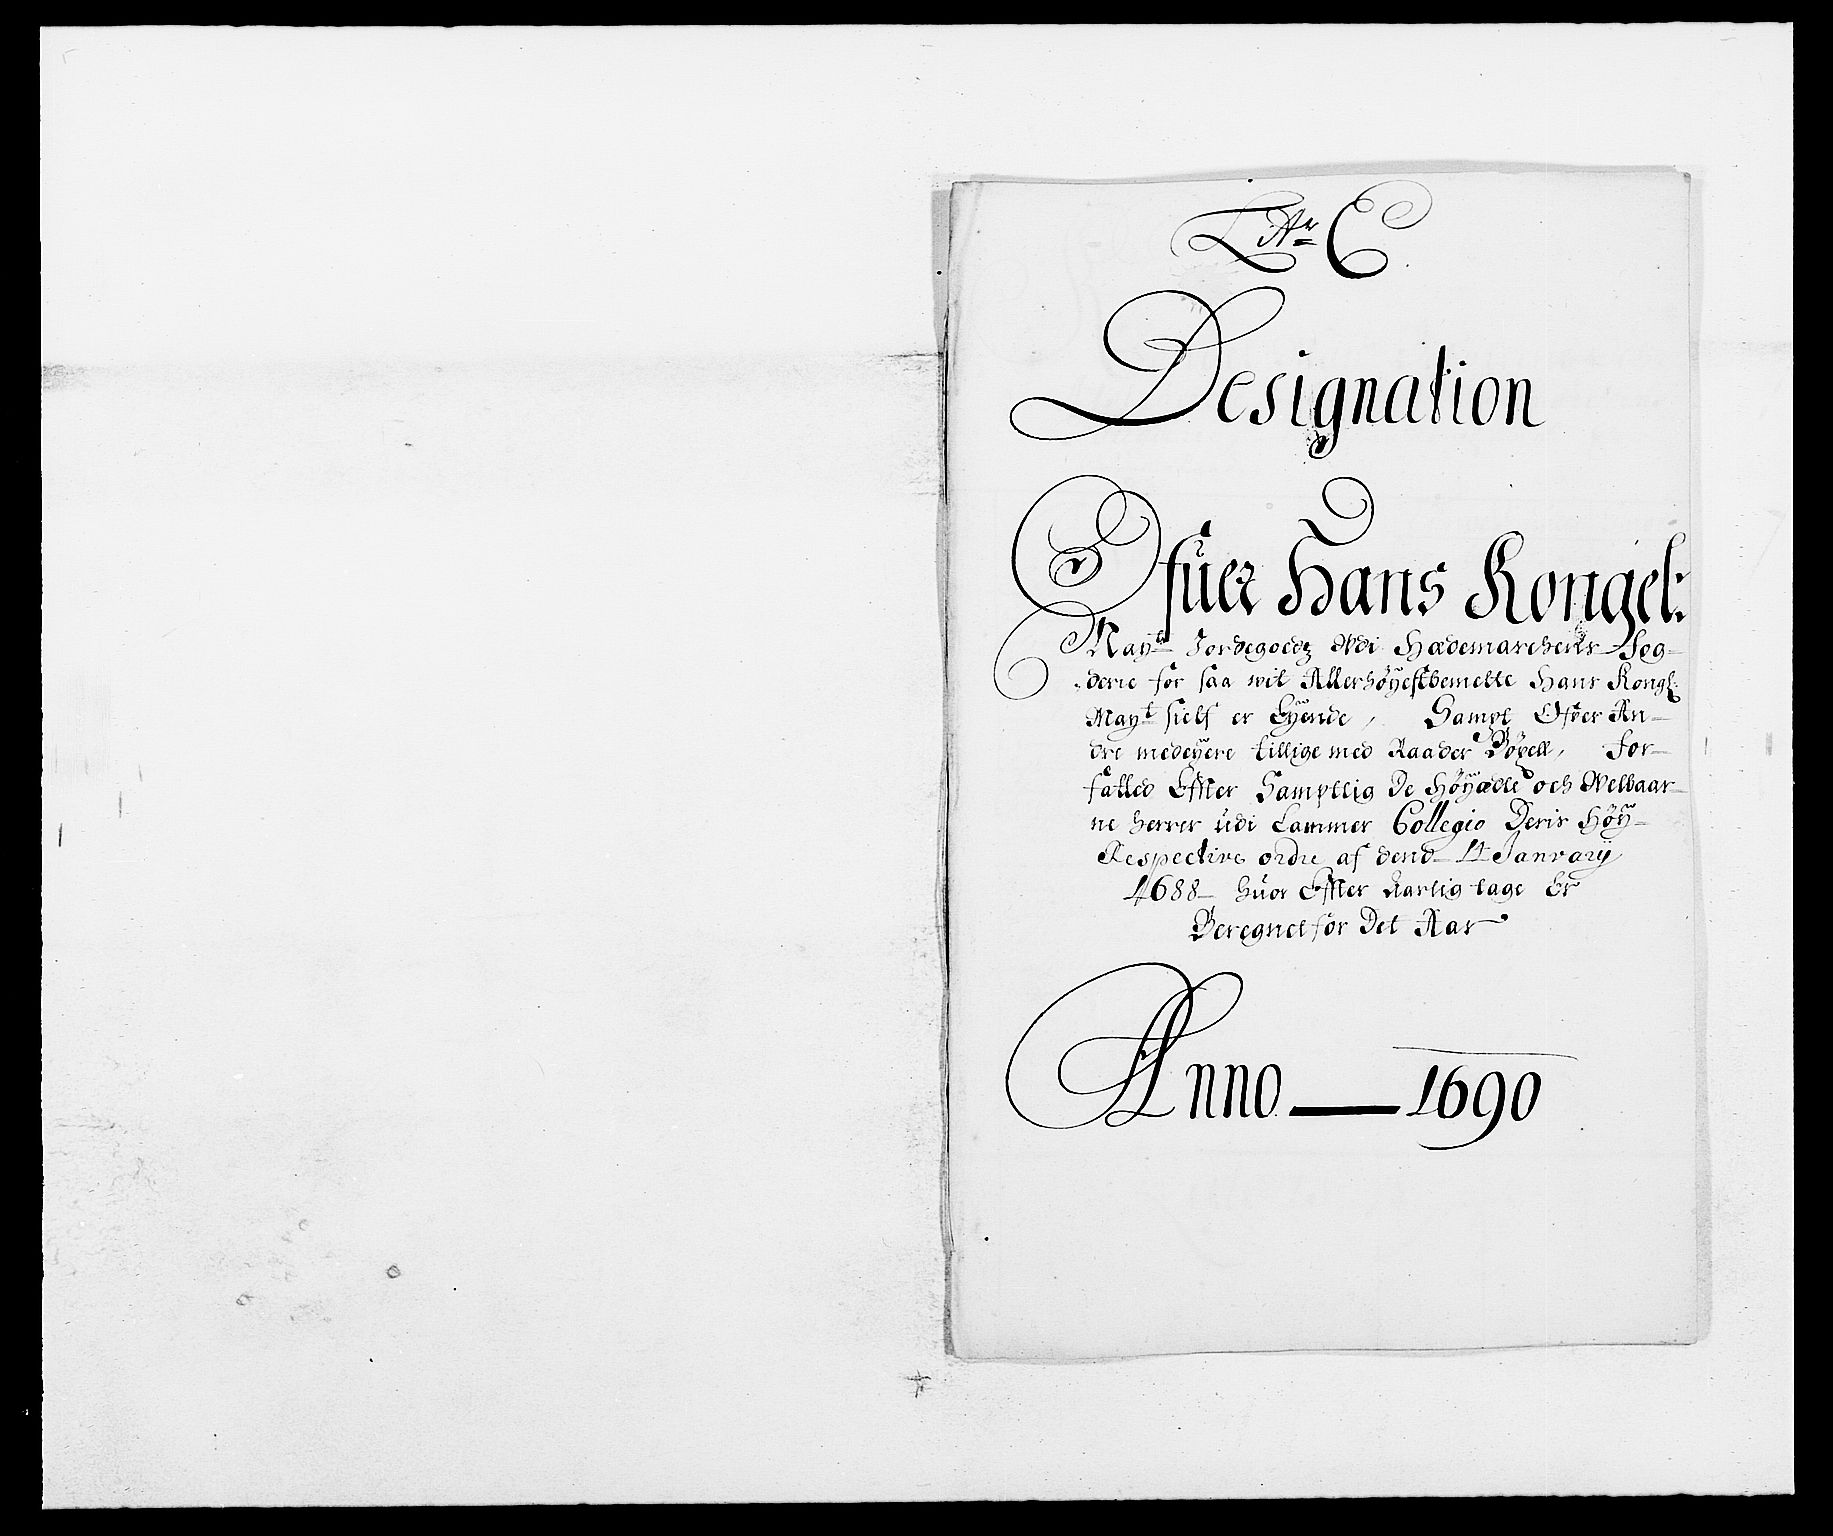 Ltr C
Designation
Ofuer Hans Kongel:
Mayts Jordegoedz Udi Hædemarchens Fog-
derie for saa wit Allerhøyestbemelte Hans Kongl:
Mayt sielf er Eyende, Sampt Ofver An-
dre medeyere tillige med Raader Bøxell, For-
fatted Effter Samptlig De Høyædle och Welbaar-
ne herrer udi Cammer Collegio Deris Høy-
Respective ordre af dend 14 Janvarij
1688 huor Effter Aarlig tage Er
Beregnet for Det Aar
Anno — 1690